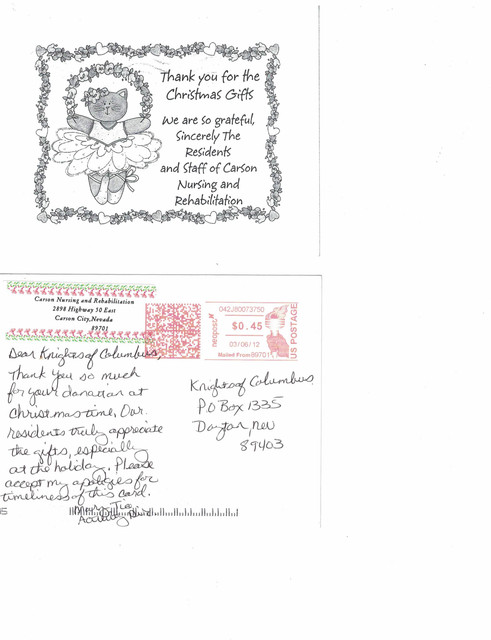 Thank you for the
Christmas Gifts
We are so grateful,
Sincerely The
Residents
and Staff of Carson
Nursing and
Rehabilitation
Carson Nursing and Rehabilitation
2898 Highway 50 East
Carson City, Nevada
89701
neopost
042J80073750
$0.45
03/06/12
Mailed From 89701
US POSTAGE
Dear Knights of Columbus,
Thank you so much
for your donation at
Christmas time. Our
residents truly appreciate
the gifts, especially
at the holiday. Please
accept my apologies for
timeliness of this card.
Activity
Knights of Columbus
PO Box 1335
Dayton, Nev
89403